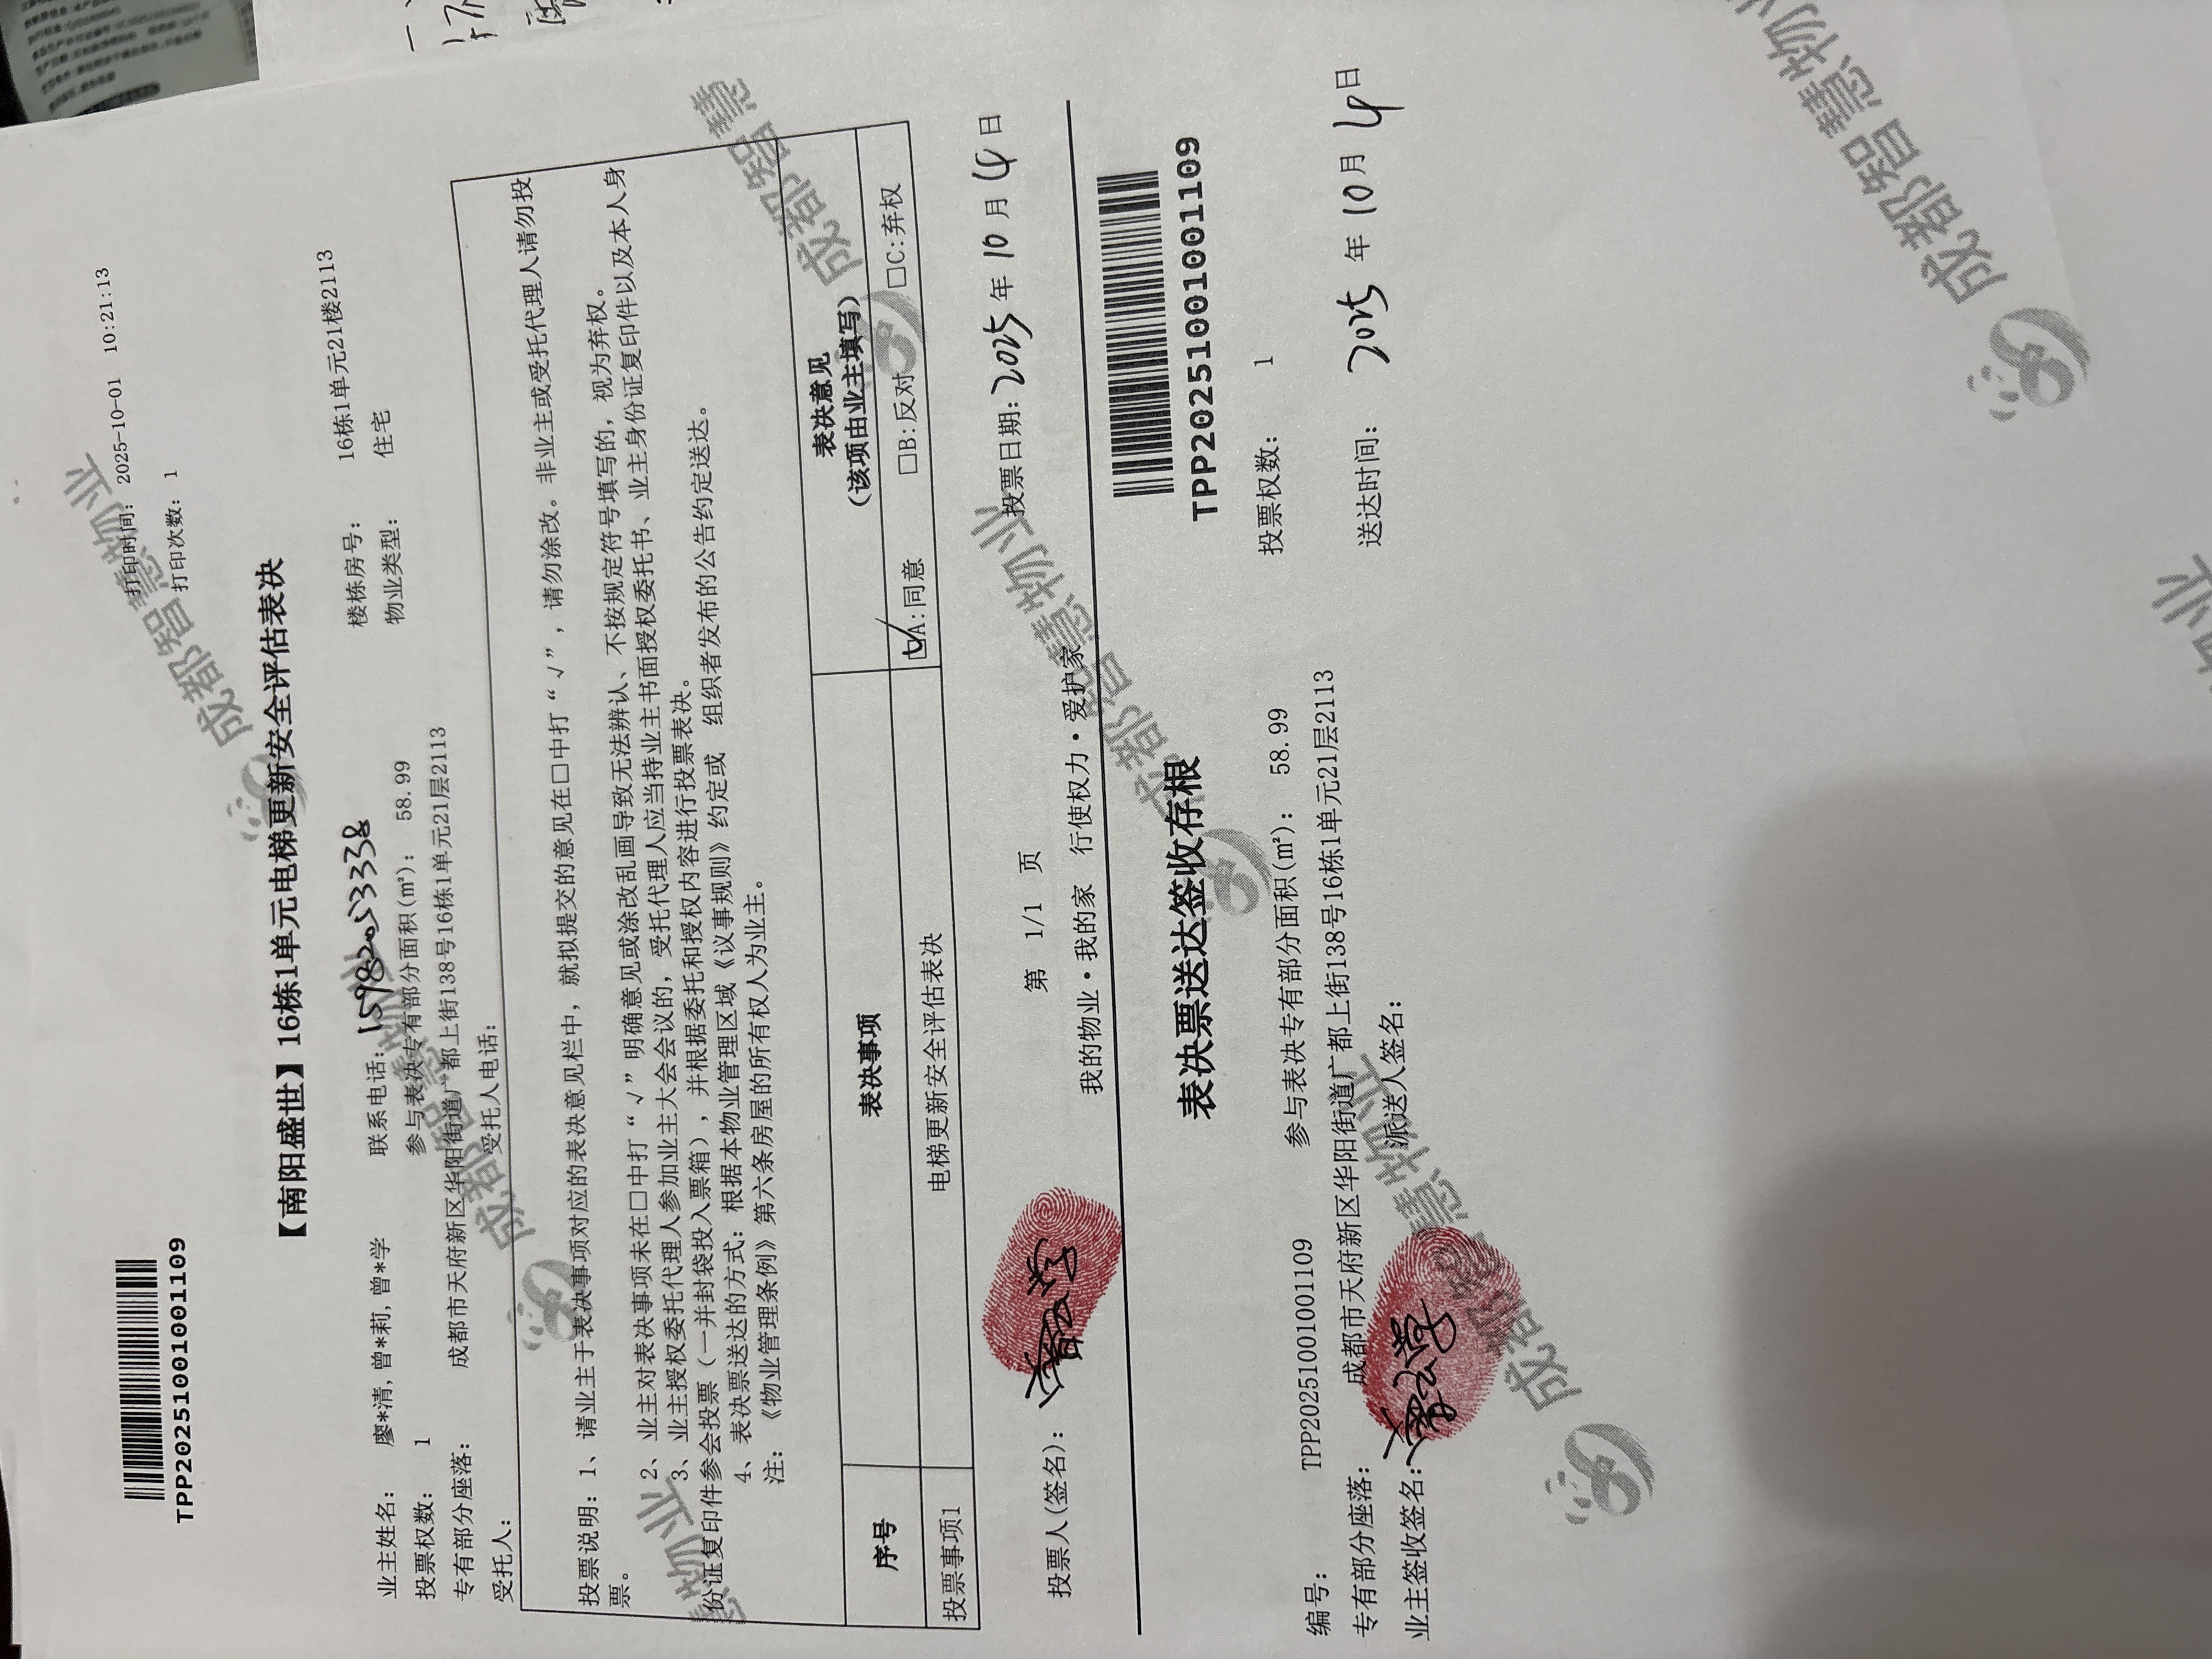 TPP20251001001109
打印时间： 2025-10-01 10:21:13
打印次数： 1
【南阳盛世】16栋1单元电梯更新安全评估表决
业主姓名： 廖*清,曾*莉,曾*学 联系电话：15982053338 楼栋房号： 16栋1单元21楼2113
投票权数： 1 参与表决专有部分面积(m²)： 58.99 物业类型： 住宅
专有部分座落： 成都市天府新区华阳街道广都上街138号16栋1单元21层2113
受托人： 受托人电话：
投票说明：1、请业主于表决事项对应的表决意见栏中，就拟提交的意见在□中打“√”，请勿涂改。非业主或受托代理人请勿投
票。
2、业主对表决事项未在□中打“√”明确意见或涂改乱画导致无法辨认、不按规定符号填写的，视为弃权。
3、业主授权委托代理人参加业主大会会议的，受托代理人应当持业主书面授权委托书、业主身份证复印件以及本人身
份证复印件参会投票（一并封袋投入票箱），并根据委托和授权内容进行投票表决。
4、表决票送达的方式：根据本物业管理区域《议事规则》约定或 组织者发布的公告约定送达。
注：《物业管理条例》第六条房屋的所有权人为业主。
序号 表决事项 表决意见
（该项由业主填写）
投票事项1 电梯更新安全评估表决 ☑A:同意 □B:反对 □C:弃权
投票人(签名)： 第 1/1 页 投票日期：2025 年 10 月 4 日
我的物业·我的家 行使权力·爱护家
表决票送达签收存根
TPP20251001001109
编号： TPP20251001001109 参与表决专有部分面积(m²)： 58.99 投票权数： 1
专有部分座落： 成都市天府新区华阳街道广都上街138号16栋1单元21层2113
业主签收签名： 派送人签名： 送达时间： 2025 年 10 月 4 日
成都智慧物业
成都智慧物业
慧物业
成都智慧
成都智慧物业
成都智慧物业
成都智慧物业